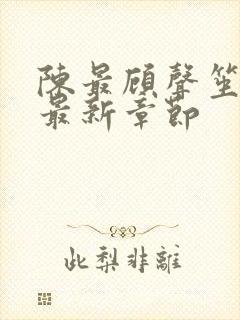 陳最顧聲笙
最新章節
此梨非離